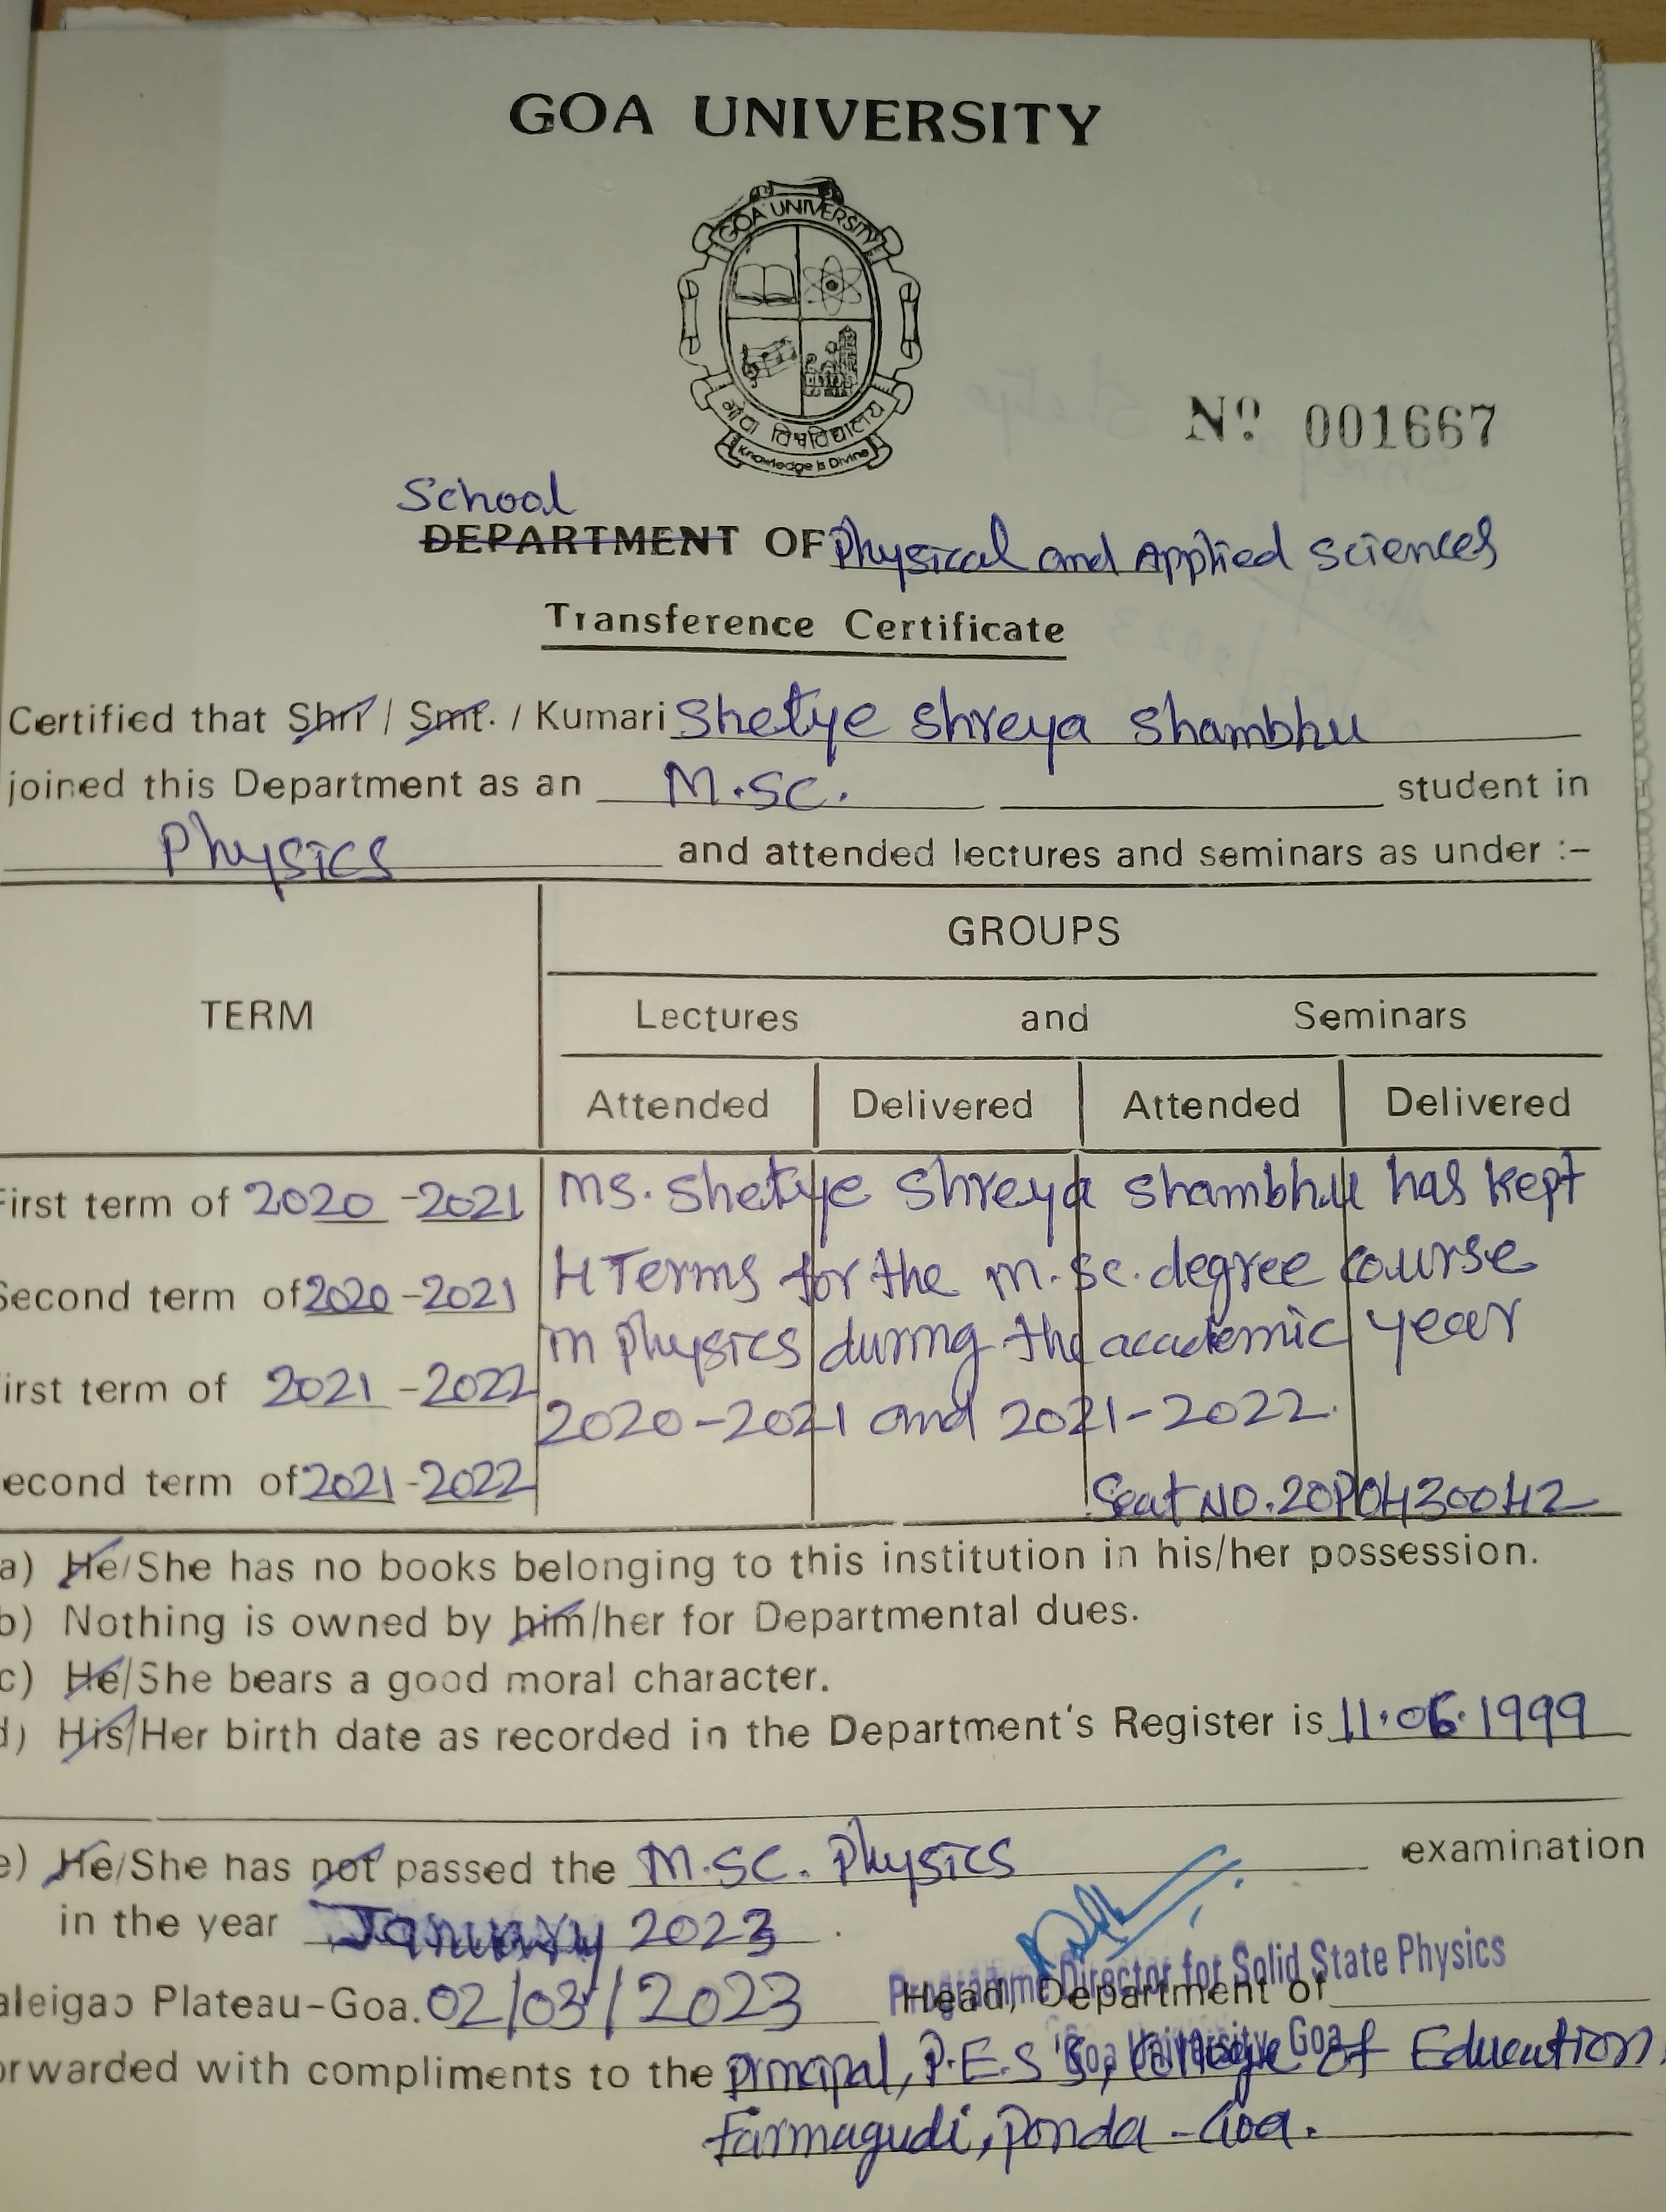 GOA UNIVERSITY
GOA UNIVERSITY
गोंय विश्वविद्यालय
Knowledge is Divine
Nº 001667
School
DEPARTMENT OF Physical and Applied Sciences
Transference Certificate
Certified that Shri / Smt. / Kumari Shetye Shreya Shambhu
joined this Department as an M.Sc. student in
Physics and attended lectures and seminars as under :-
GROUPS
TERM Lectures and Seminars
Attended Delivered Attended Delivered
First term of 2020-2021 Ms. Shetye Shreya Shambhu has kept
Second term of 2020-2021 4 Terms for the M.Sc. degree course
in Physics during the academic year
irst term of 2021-2022
2020-2021 and 2021-2022.
econd term of 2021-2022 Seat NO. 20P0430042
a) He/She has no books belonging to this institution in his/her possession.
b) Nothing is owned by him/her for Departmental dues.
c) He/She bears a good moral character.
d) His/Her birth date as recorded in the Department's Register is 11.06.1999
e) He/She has not passed the M.Sc. Physics examination
in the year January 2023.
Programme Director for Solid State Physics
aleigao Plateau-Goa. 02/03/2023 Head, Department of
Goa University, Goa
orwarded with compliments to the principal, P.E.S's, College of Education,
Farmagudi, Ponda - Goa.